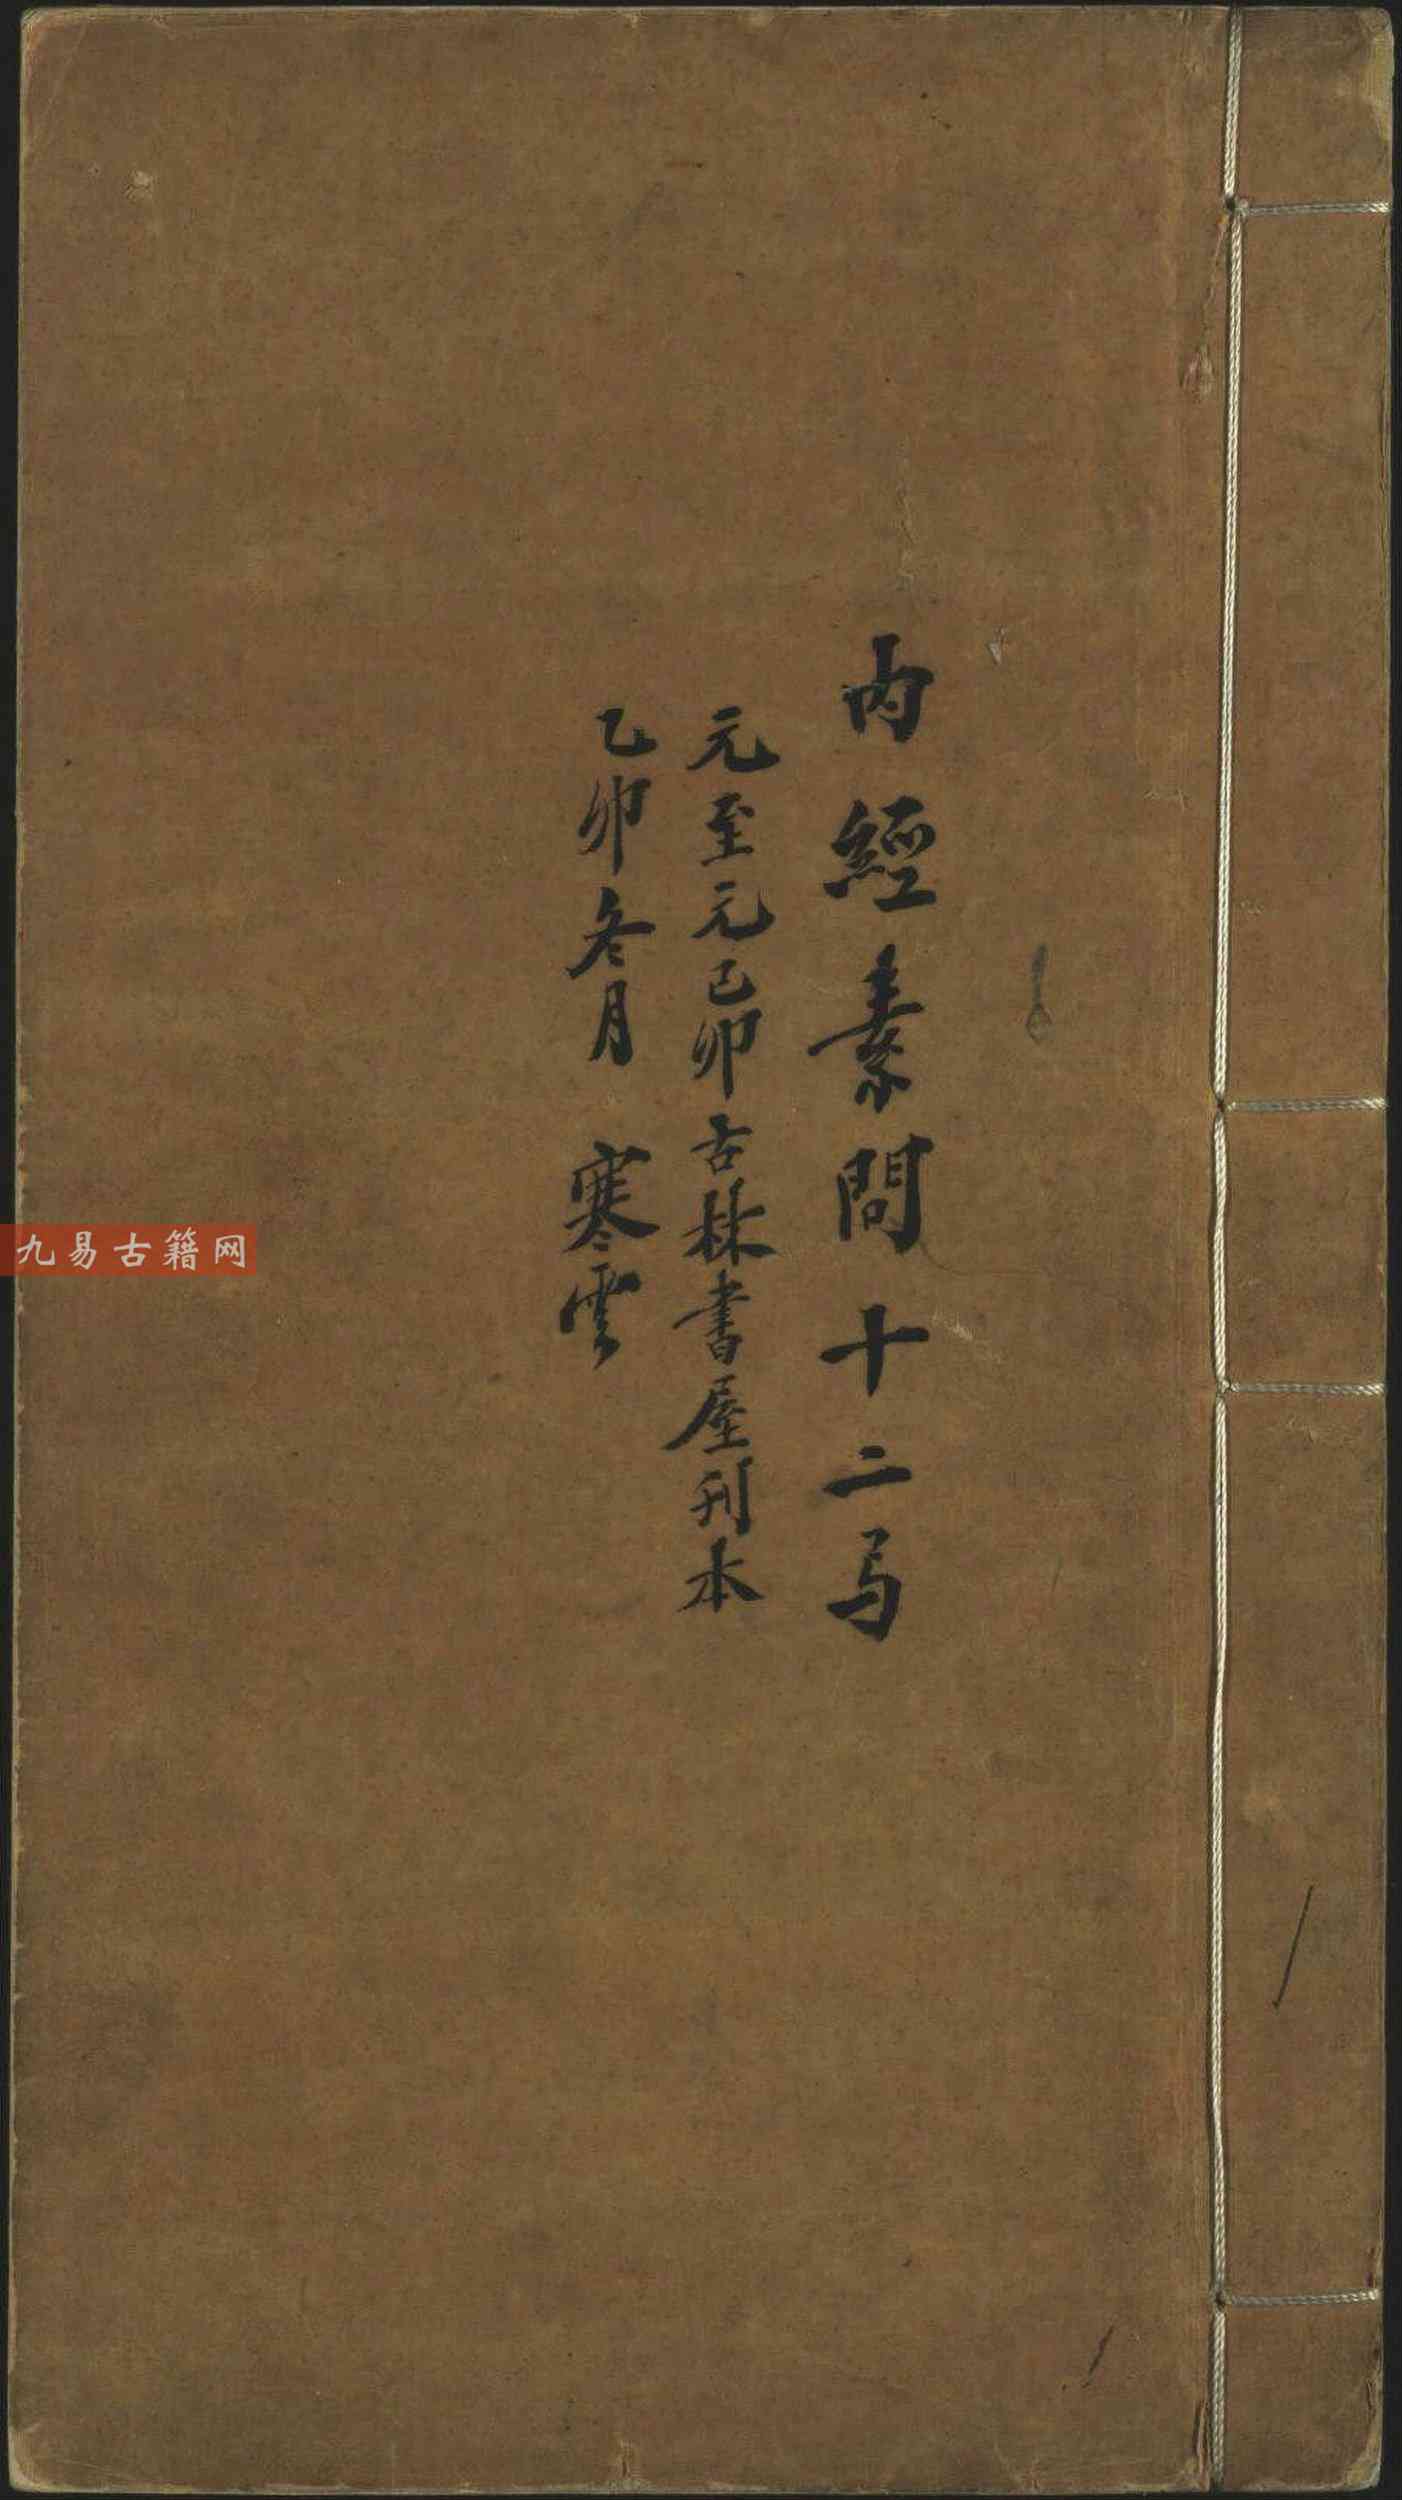 内經素問十二𢎥
元至元己卯古林書屋刊本
乙卯冬月 寒雲
九易古籍网